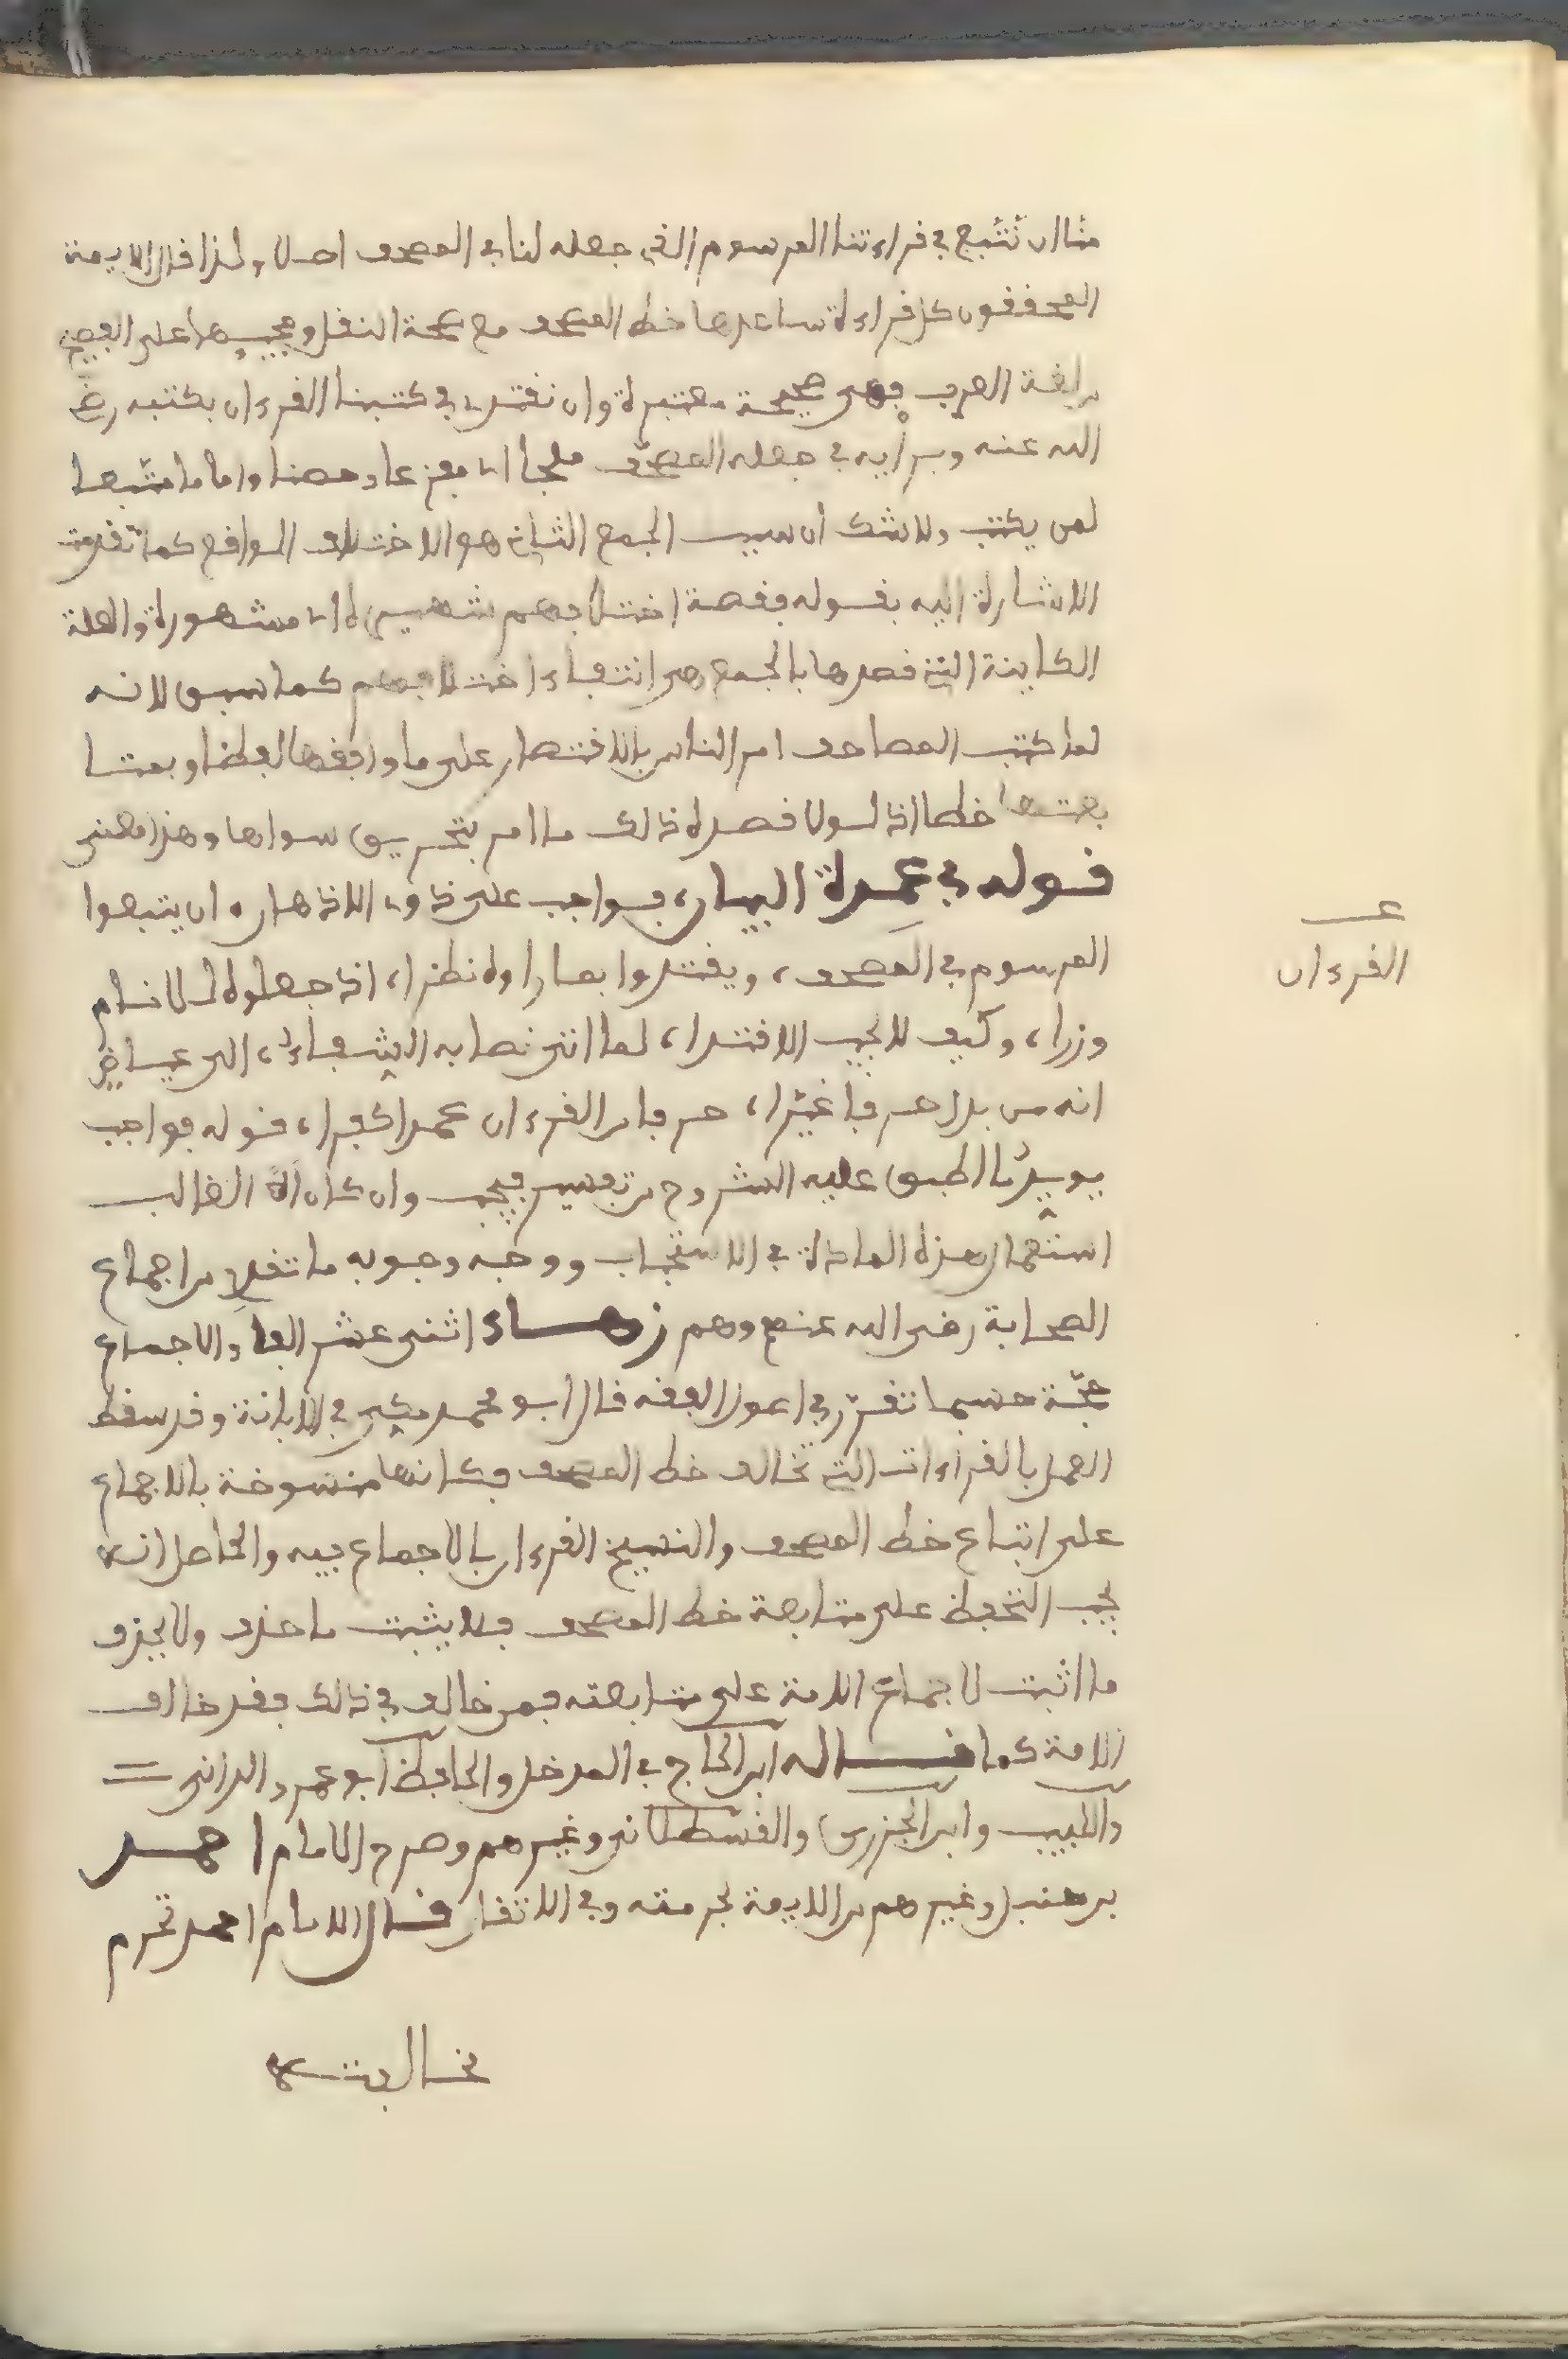 منا ان نتبع في قراءتنا المرسوم الذي جعله لنا في المصحف اصلا ولذا قال الايمة
المحققون كل قراءة ساعدها خط المصحف مع صحة النقل ومجيئها على الفصيح
من لغة العرب فهي صحيحة معتبرة وان نقتدي في كتبنا القرءان بكتبه رضي
الله عنه وبرأيه في جعله المصحف ملجا اي مفزعا وحصنا واماما متبعا
لمن يكتب ولا شك ان سبب الجمع الثاني هو الاختلاف الواقع كما تقدمت
الاشارة اليه بقوله فقصة اختلافهم شهيرة اي مشهورة والعلة
الكاينة التي قصدها بالجمع هي انتفاء اختلافهم كما سبق لانه
لما كتب المصاحف امر الناس بالاقتصار على ما وافقها لفظا وبمتا
بعتها خطا اذ لولا قصده ذالك ما امر بتحريق سواها وهذا معنى
قوله في عمدة البيان فواجب على ذوي الاذهان ان يتبعوا
المرسوم في المصحف، ويقتدوا بما راه نظرا، اذ جعلوه للانام
وزرا، وكيف لا يجب الاقتدا، لما اتى نصا به الشفاء، الى عياض
انه من بدل حرفا غيرا، حرفا من القرءان عمدا كفرا، قوله فواجب
يويد ما اطبق عليه الشروح من تفسير يجب وان كان الغالب
استعمال هذه المادة في الاستحباب ووجه وجوبه ما تقدم من اجماع
الصحابة رضي الله عنهم وهم زهاء اثنى عشر الفا والاجماع
حجة حسبما تقرر في اصول الفقه قال ابو محمد مكي في الابانة وقد سقط
العمل بالقراءات التي تخالف خط المصحف فكانها منسوخة بالاجماع
على اتباع خط المصحف والنسخ القرءان بالاجماع فيه والحاصل انه
يجب التحفظ على متابعة خط المصحف فلا يثبت ما حذف ولا يحذف
ما اثبت لاجماع الامة على متابعته فمن خالف في ذالك فقد خالف
الامة كما قاله ابن الحاج في المدخل والحافظ ابو عمرو الداني
واللبيب وابن الجزري والقسطلاني وغيرهم وصرح الامام احمد
بن حنبل وغيرهم من الايمة بحرمته وفي الاتقان قال الامام احمد تحرم
مخالفته
عـ
القرءان